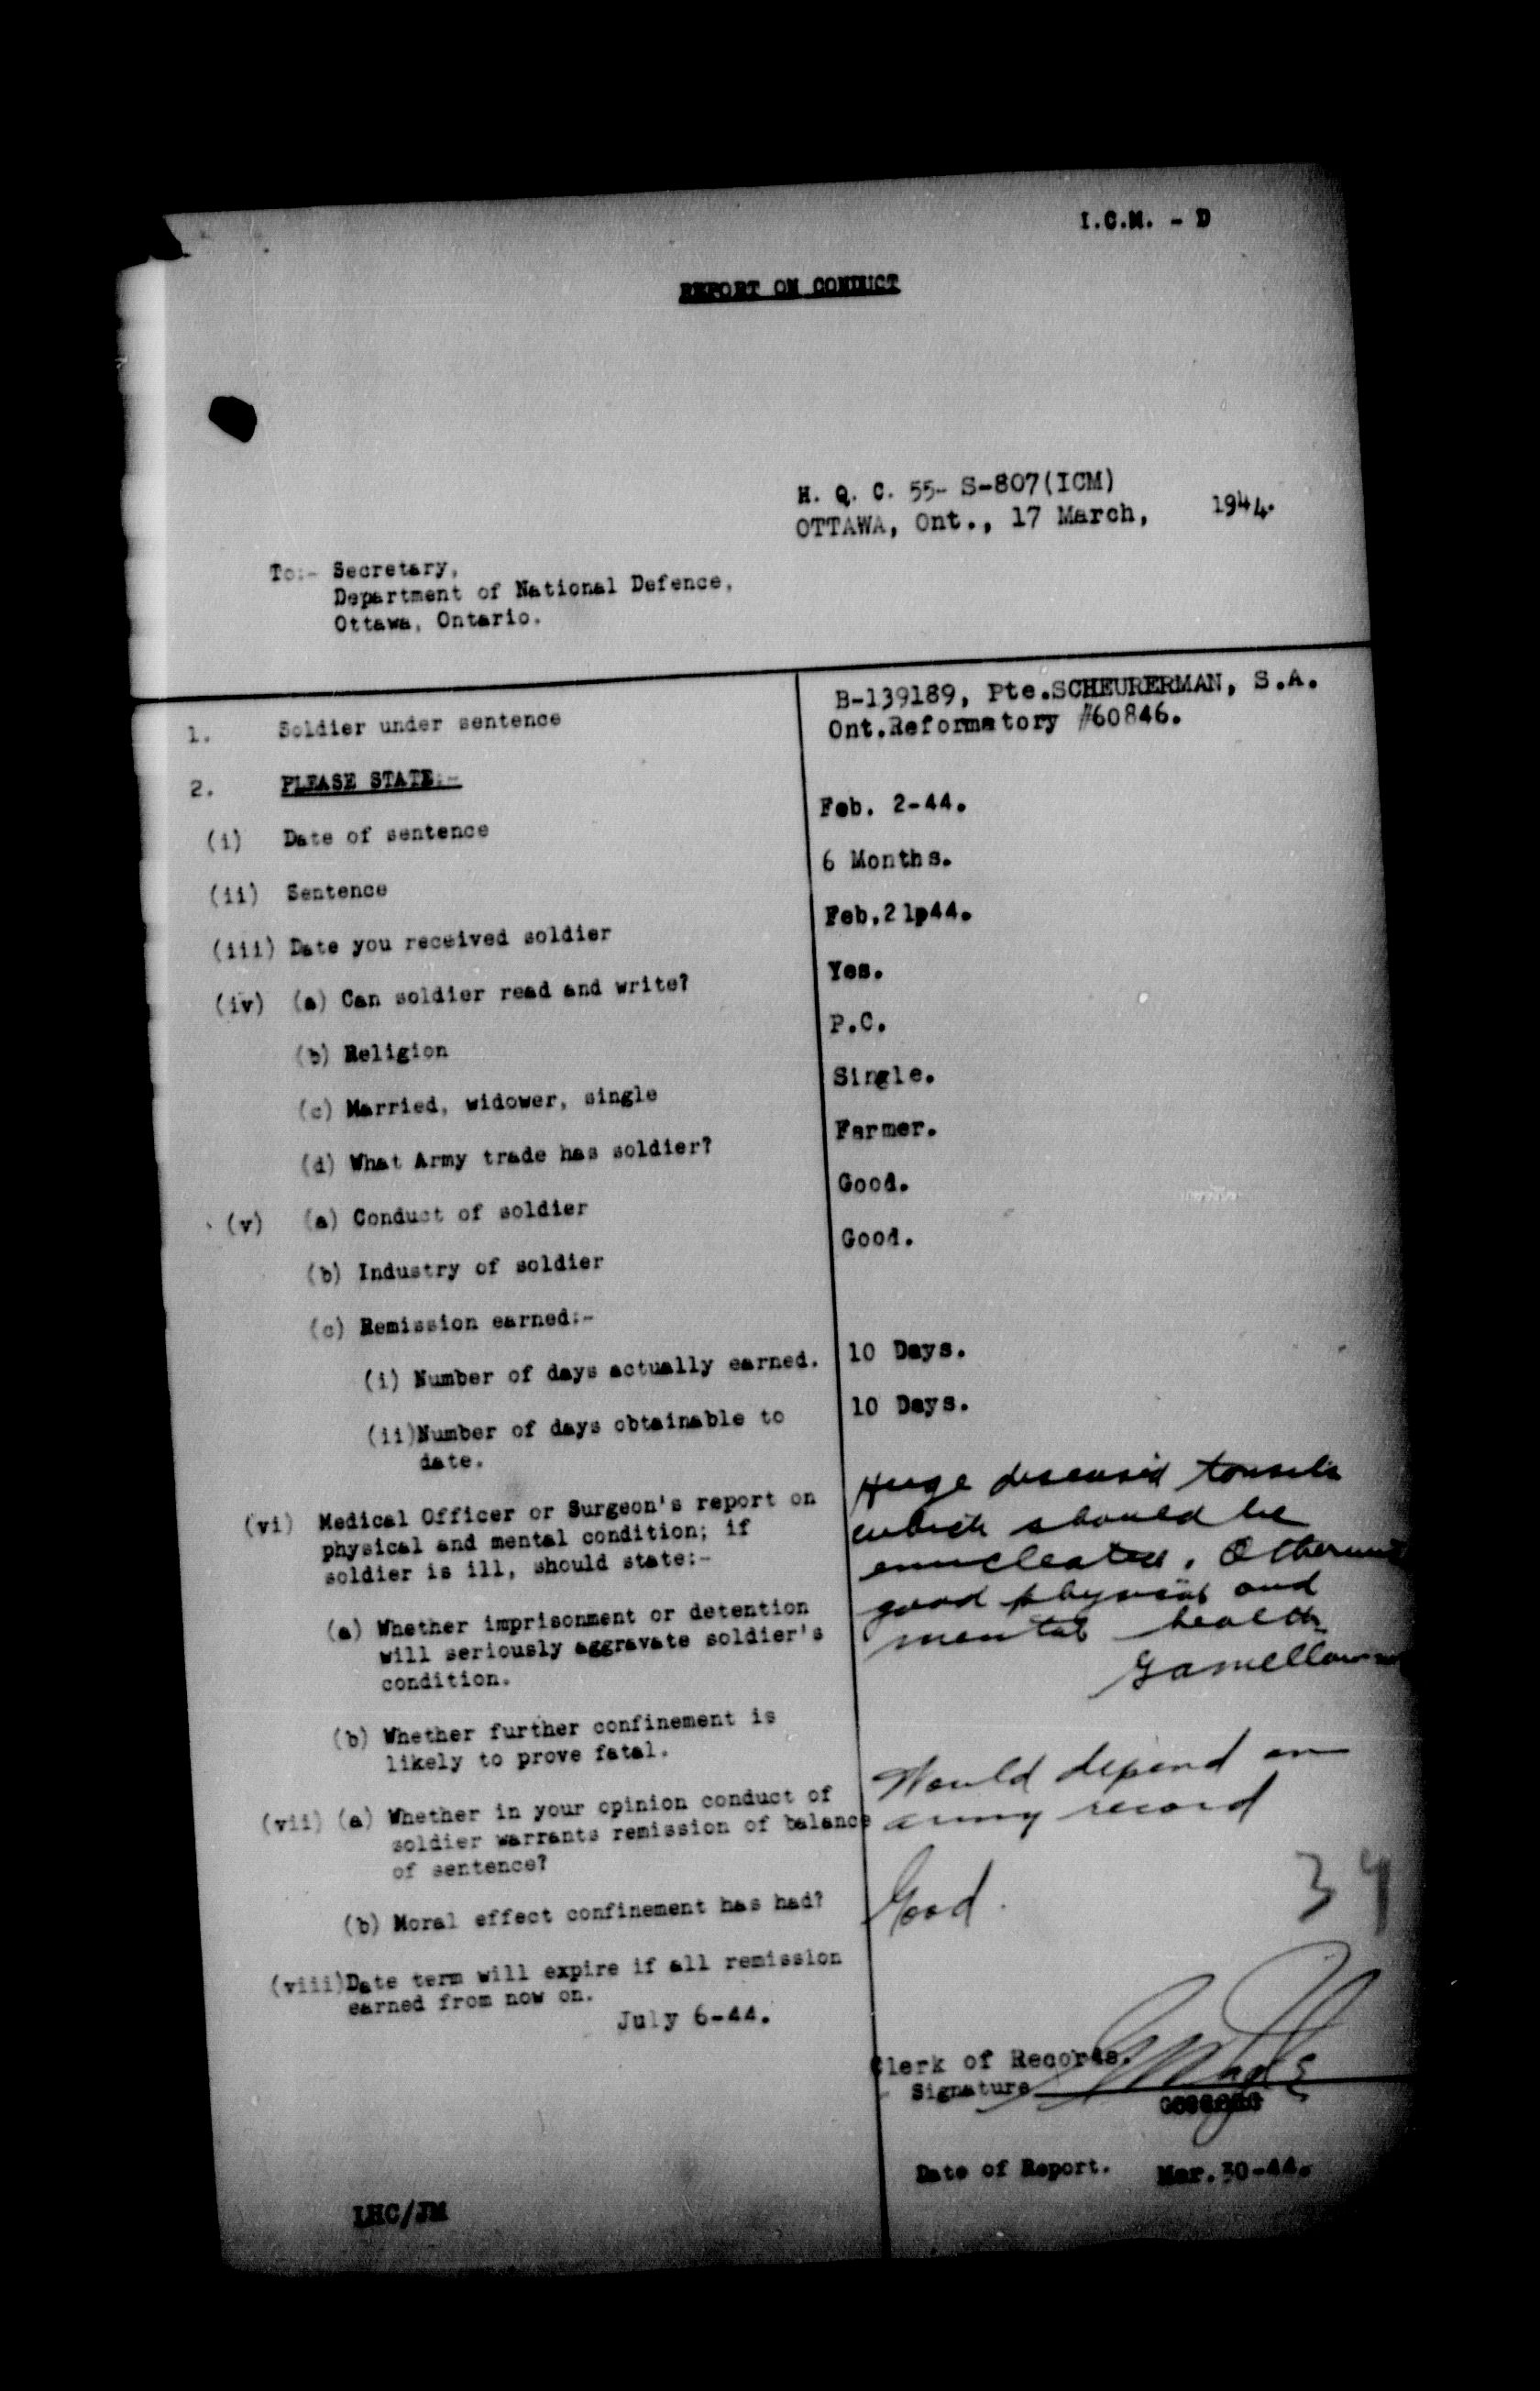 I.C.M. - D
REPORT ON CONDUCT
H. Q. C. 55- S-807(ICM)
OTTAWA, Ont., 17 March, 1944.
To:- Secretary,
Department of National Defence,
Ottawa, Ontario.
1. Soldier under sentence
B-139189, Pte.SCHEURERMAN, S.A.
Ont.Reformatory #60846.
2. PLEASE STATE:-
(i) Date of sentence
Feb. 2-44.
(ii) Sentence
6 Months.
(iii) Date you received soldier
Feb,21p44.
(iv) (a) Can soldier read and write?
Yes.
(b) Religion
P.C.
(c) Married, widower, single
Single.
(d) What Army trade has soldier?
Farmer.
(v) (a) Conduct of soldier
Good.
(b) Industry of soldier
Good.
(c) Remission earned:-
(i) Number of days actually earned.
10 Days.
(ii)Number of days obtainable to
date.
10 Days.
(vi) Medical Officer or Surgeon's report on
physical and mental condition; if
soldier is ill, should state:-
(a) Whether imprisonment or detention
will seriously aggravate soldier's
condition.
Huge diseased tonsils
which should be
enucleated. Otherwise
good physical and
mental health
(b) Whether further confinement is
likely to prove fatal.
(vii) (a) Whether in your opinion conduct of
soldier warrants remission of balance
of sentence?
Would depend on
army record
(b) Moral effect confinement has had?
Good.
34
(viii)Date term will expire if all remission
earned from now on.
July 6-44.
Clerk of Records.
Signature
Date of Report. Mar.30-44.
LHC/JM